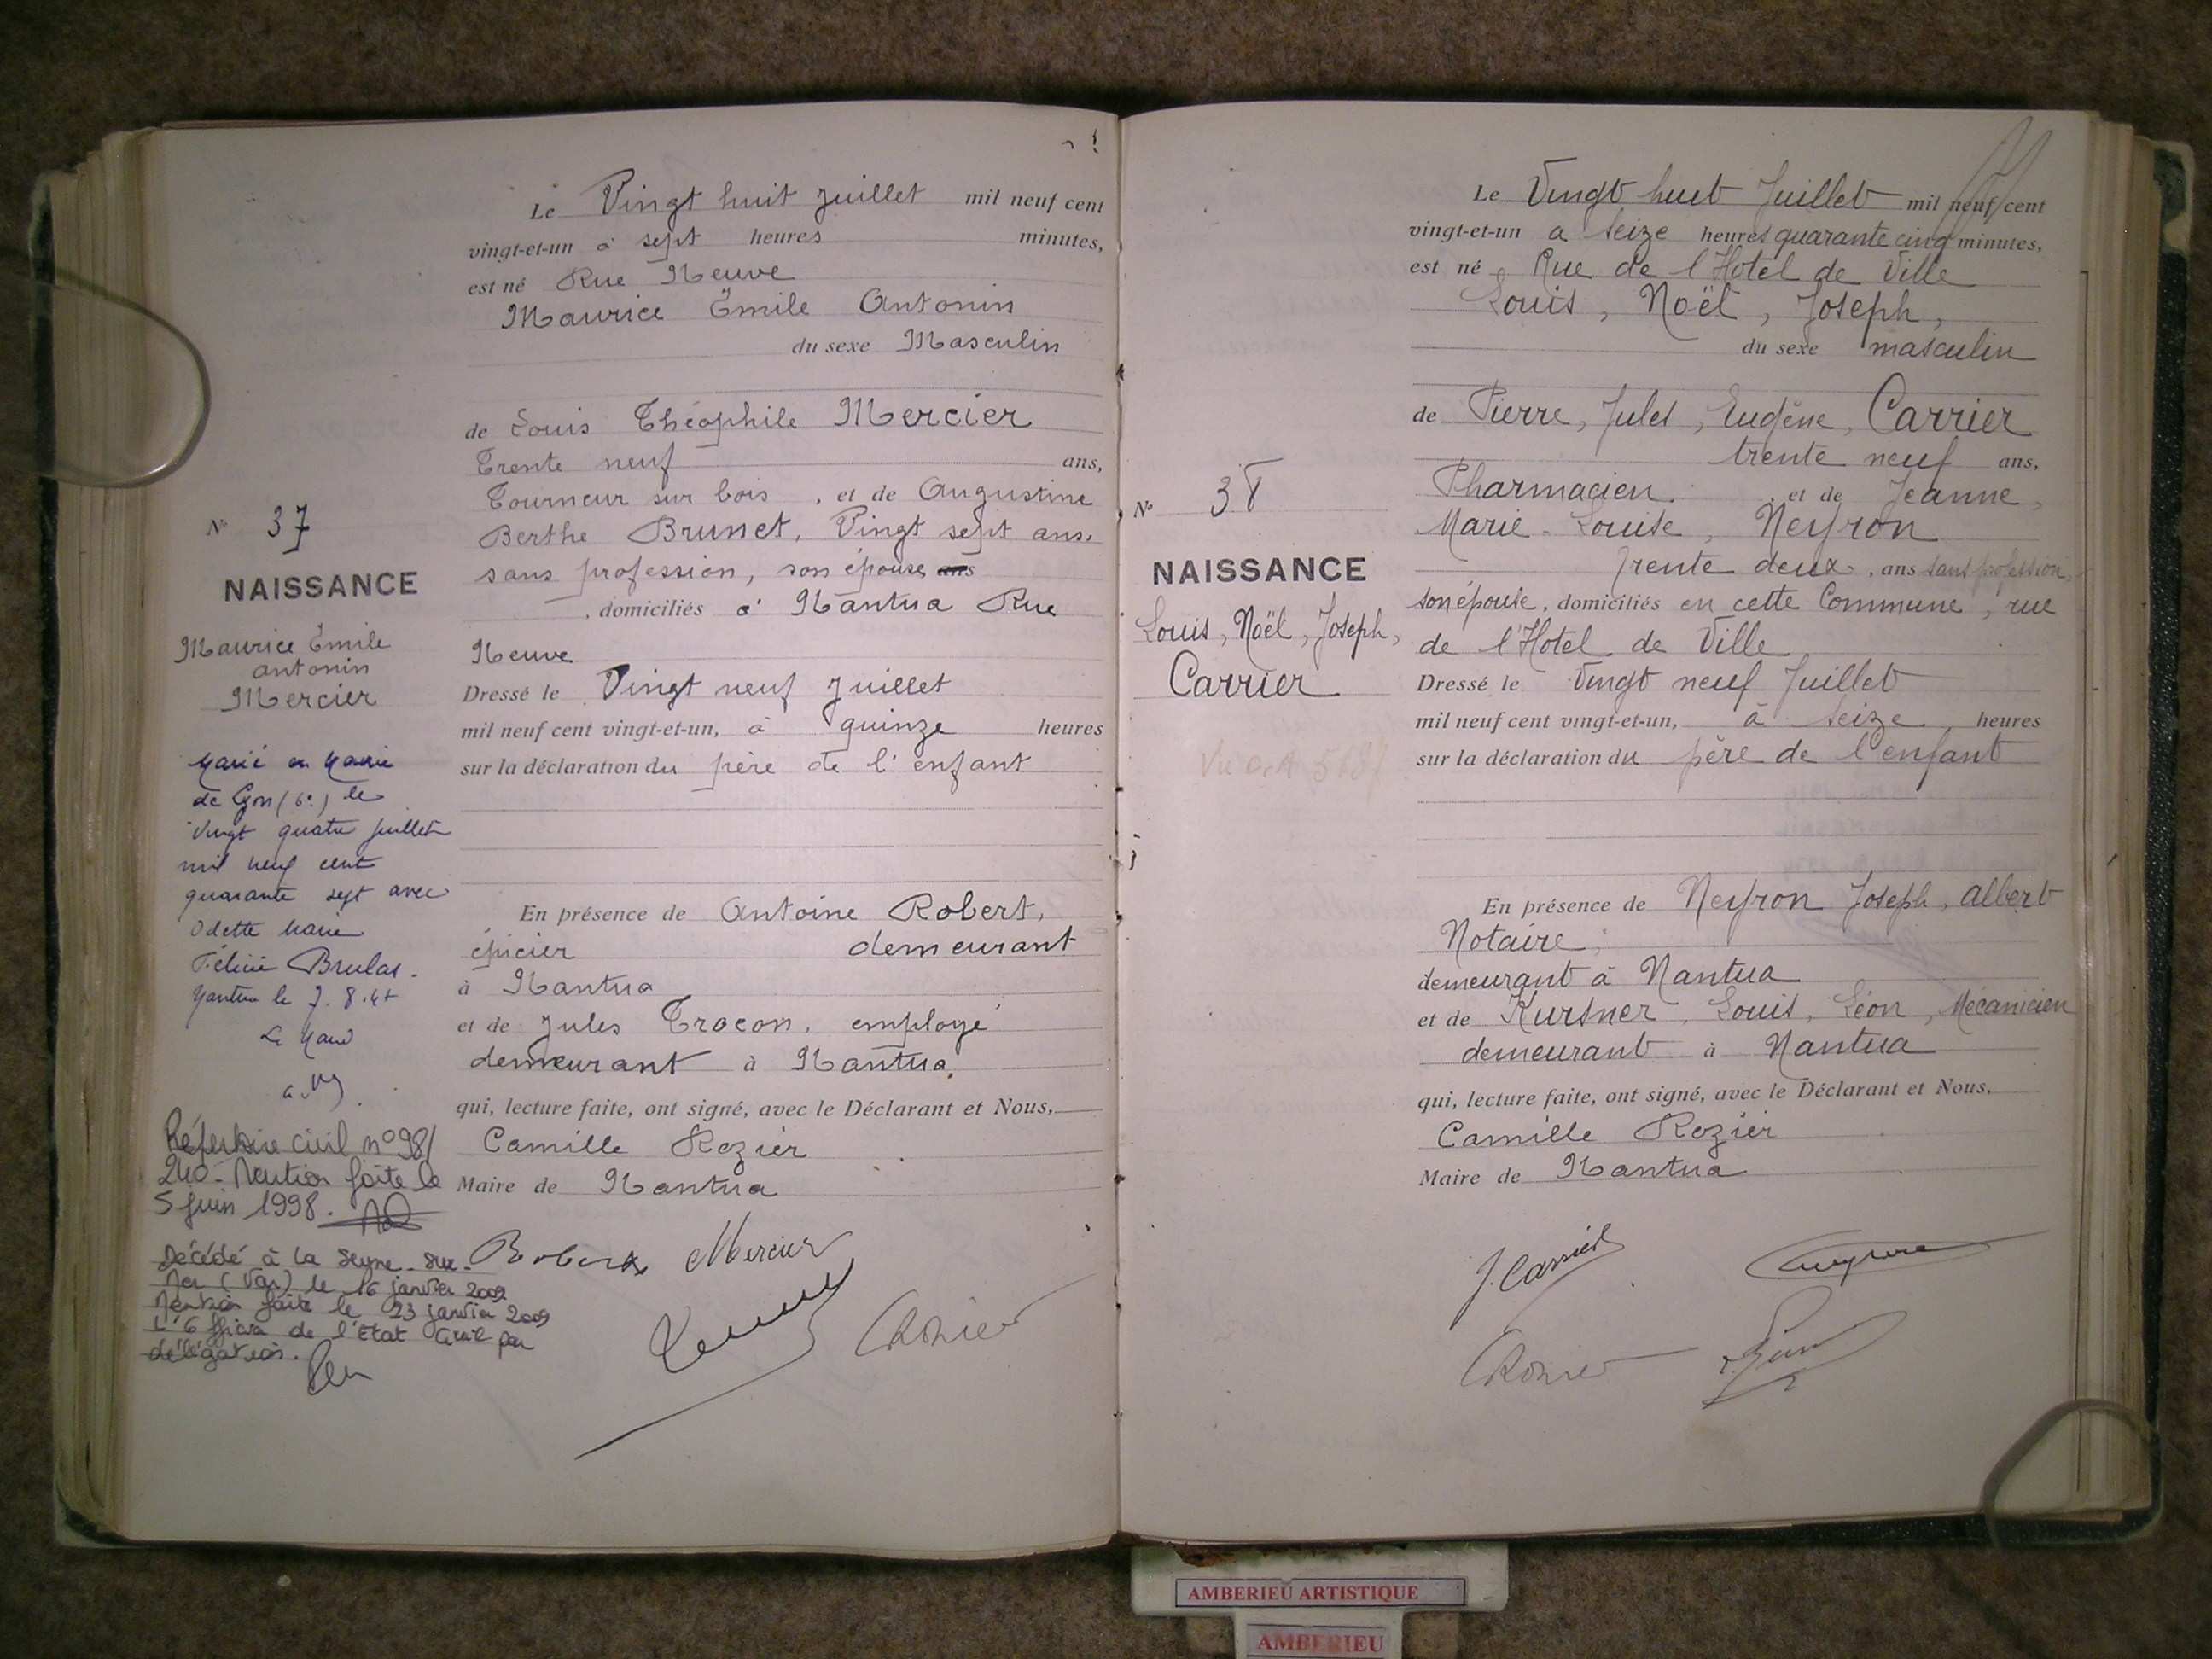 Le Vingt huit Juillet mil neuf cent
vingt-et-un à sept heures minutes,
est né Rue Neuve
Maurice Émile Antonin
du sexe Masculin
de Louis Théophile Mercier
Trente neuf ans,
Tourneur sur bois, et de Augustine
Berthe Brunet, Vingt sept ans,
sans profession, son épouse, ans
, domiciliés à Nantua Rue
Neuve
Dressé le Vingt neuf Juillet
mil neuf cent vingt-et-un, à quinze heures
sur la déclaration du père de l'enfant
En présence de Antoine Robert,
épicier demeurant
à Nantua
et de Jules Trocon, employé
demeurant à Nantua.
qui, lecture faite, ont signé, avec le Déclarant et Nous,
Camille Rozier
Maire de Nantua
Robert Mercier
CRozier
N° 37
NAISSANCE
Maurice Émile
antonin
Mercier
Marié en Mairie
de Lyon (6e) le
Vingt quatre juillet
mil neuf cent
quarante sept avec
Odette Marie
Félicie Brulas.
Nantua le 7.8.47
Le Maire
Répertoire civil n°98/
240 - Mention faite le
5 juin 1998.
Décédé à la Seyne-sur-
Mer (Var) le 16 janvier 2009
Mention faite le 23 janvier 2009
L'Officier de l'Etat Civil par
délégation.
Le Vingt huit Juillet mil neuf cent
vingt-et-un à seize heures quarante cinq minutes,
est né Rue de l'Hotel de Ville
Louis, Noël, Joseph,
du sexe masculin
de Pierre, Jules, Eugène, Carrier
trente neuf ans,
Pharmacien. et de Jeanne,
Marie-Louise, Neyron
trente deux, ans sans profession,
son épouse, domiciliés en cette Commune, rue
de l'Hotel de Ville
Dressé le Vingt neuf Juillet
mil neuf cent vingt-et-un, à seize heures
sur la déclaration du père de l'enfant
En présence de Neyron Joseph, Albert
Notaire,
demeurant à Nantua
et de Kursner, Louis, Léon, Mécanicien
demeurant à Nantua
qui, lecture faite, ont signé, avec le Déclarant et Nous,
Camille Rozier
Maire de Nantua
J. Carrier
CRozier
N° 38
NAISSANCE
Louis, Noël, Joseph,
Carrier
AMBERIEU ARTISTIQUE
AMBERIEU